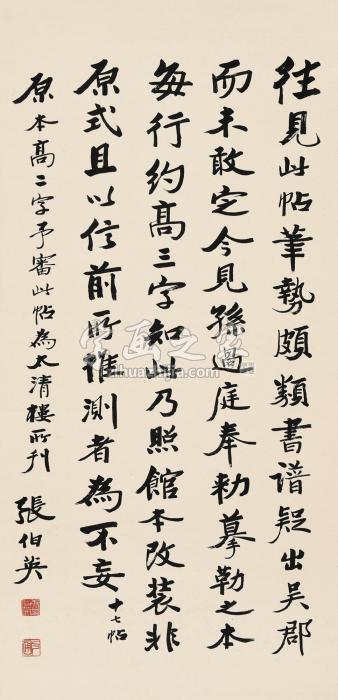 往見此帖筆勢頗類書譜疑出吳郡
而未敢定今見孫過庭奉勅摹勒之本
每行約高三字知此乃照館本改裝非
原式且以信前所推測者為不妄 十七帖
原本高二字予審此帖為太清樓所刊 張伯英